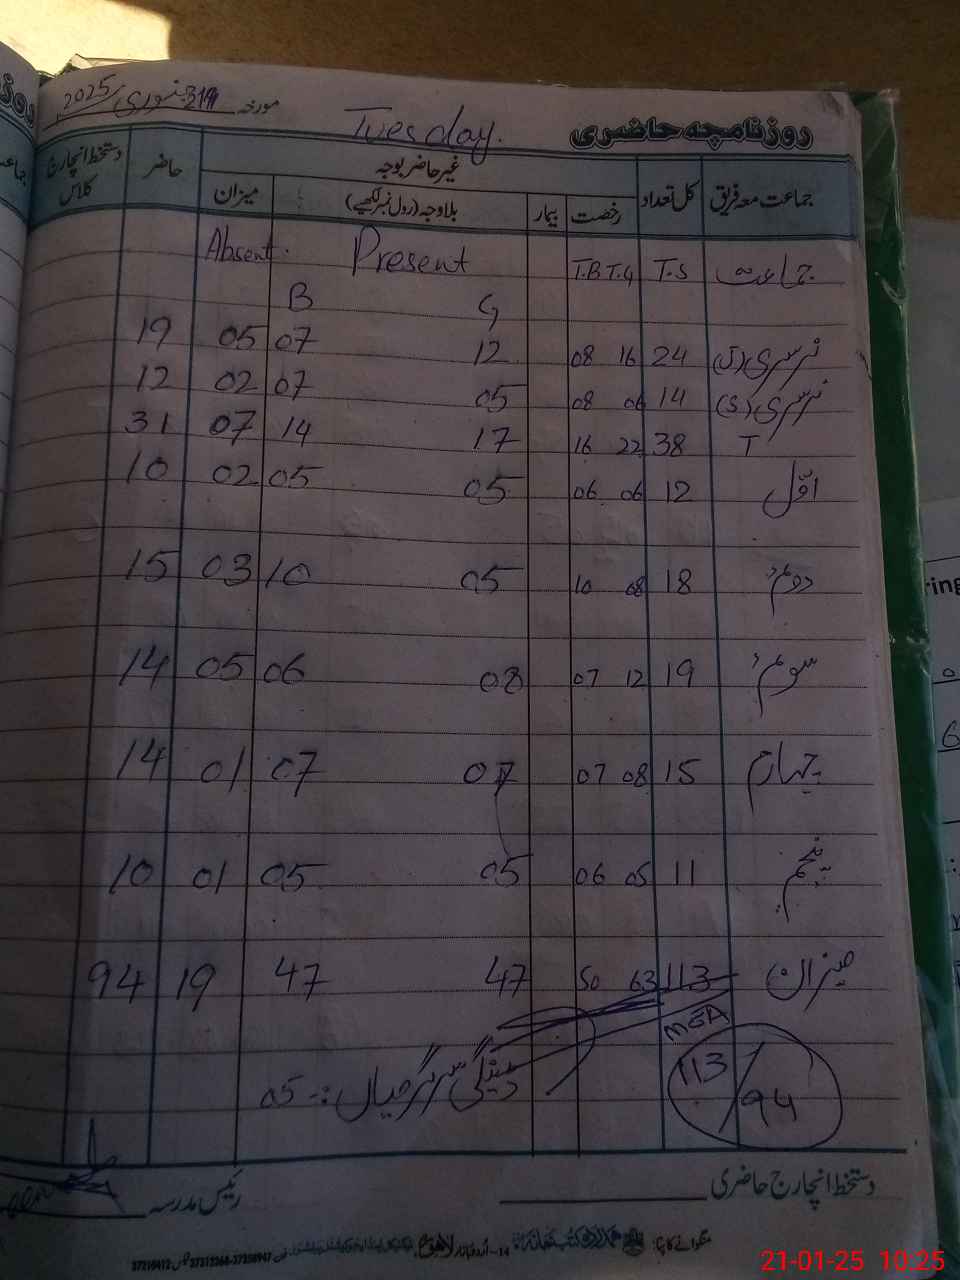 روزنامچہ حاضری
Tuesday.
مورخہ 21 جنوری 2025
جماعت معہ فریق کل تعداد غیر حاضر بوجہ حاضر دستخط انچارج کلاس
رخصت بیمار بلاوجہ (رول نمبر لکھیے) میزان
جماعت T.S T.G T.B Present Absent.
G B
نرسری 24 16 08 12 07 05 19
نرسری 14 06 08 05 07 02 12
T 38 22 16 17 14 07 31
اوّل 12 06 06 05 05 02 10
دوئم 18 08 10 05 10 03 15
سوئم 19 12 07 08 06 05 14
چہارم 15 08 07 07 07 01 14
پنجم 11 05 06 05 05 01 10
میزان 113 63 50 47 47 19 94
MEA
113/94
سرگرمیاں :- 05
دستخط انچارج حاضری
رئیس مدرسہ
منگوانے کا پتا:
اردو بازار لاہور
21-01-25 10:25